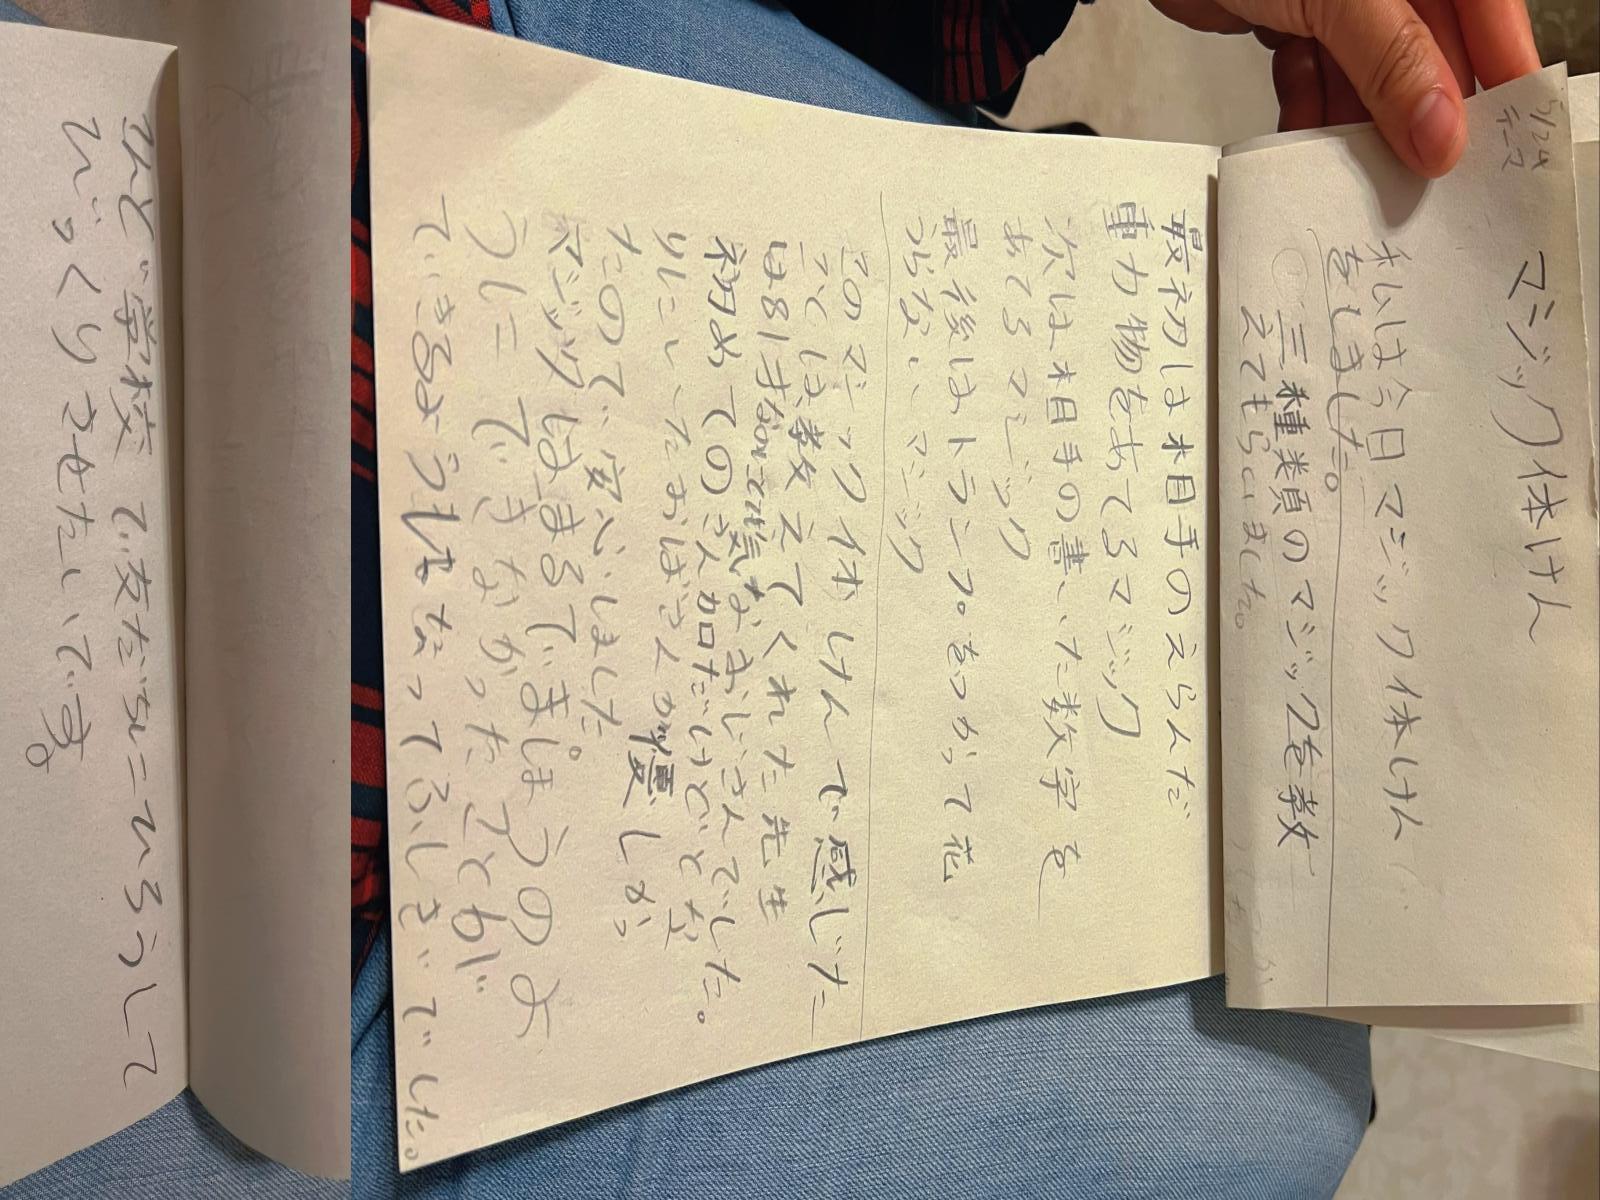 5/24
テーマ
マジック体けん
私は今日マジック体けん
をしました。
三種類のマジックを教
えてもらいました。
最初は相手のえらんだ
動物をあてるマジック
次は相手の書いた数字を
あてるマジック
最後はトランプをつかって花
つらないマジック
このマジック体けんで感じた
ことは教えてくれた先生
は81才なのに元気なおじいさんでした。
初めてのさん加だけどとな
りにいたおばさんが優しか
たので安心しました
マジックはまるでまほうのよ
うにできなかったことが
できるようになってふしぎでした。
こんど学校で友だちにひろうして
びっくりさせたいです。